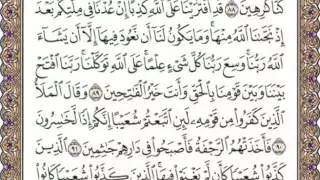 كَٰرِهِينَ ٨٨ قَدِ ٱفْتَرَيْنَا عَلَى ٱللَّهِ كَذِبًا إِنْ عُدْنَا فِى مِلَّتِكُم بَعْدَ
إِذْ نَجَّىٰنَا ٱللَّهُ مِنْهَا وَمَا يَكُونُ لَنَآ أَن نَّعُودَ فِيهَآ إِلَّآ أَن يَشَآءَ
ٱللَّهُ رَبُّنَا وَسِعَ رَبُّنَا كُلَّ شَىْءٍ عِلْمًا عَلَى ٱللَّهِ تَوَكَّلْنَا رَبَّنَا ٱفْتَحْ
بَيْنَنَا وَبَيْنَ قَوْمِنَا بِٱلْحَقِّ وَأَنتَ خَيْرُ ٱلْفَٰتِحِينَ ٨٩ وَقَالَ ٱلْمَلَأُ
ٱلَّذِينَ كَفَرُوا۟ مِن قَوْمِهِۦ لَئِنِ ٱتَّبَعْتُمْ شُعَيْبًا إِنَّكُمْ إِذًا لَّخَٰسِرُونَ
٩٠ فَأَخَذَتْهُمُ ٱلرَّجْفَةُ فَأَصْبَحُوا۟ فِى دَارِهِمْ جَٰثِمِينَ ٩١ ٱلَّذِينَ
كَذَّبُوا۟ شُعَيْبًا كَأَن لَّمْ يَغْنَوْا۟ فِيهَا ٱلَّذِينَ كَذَّبُوا۟ شُعَيْبًا كَانُوا۟